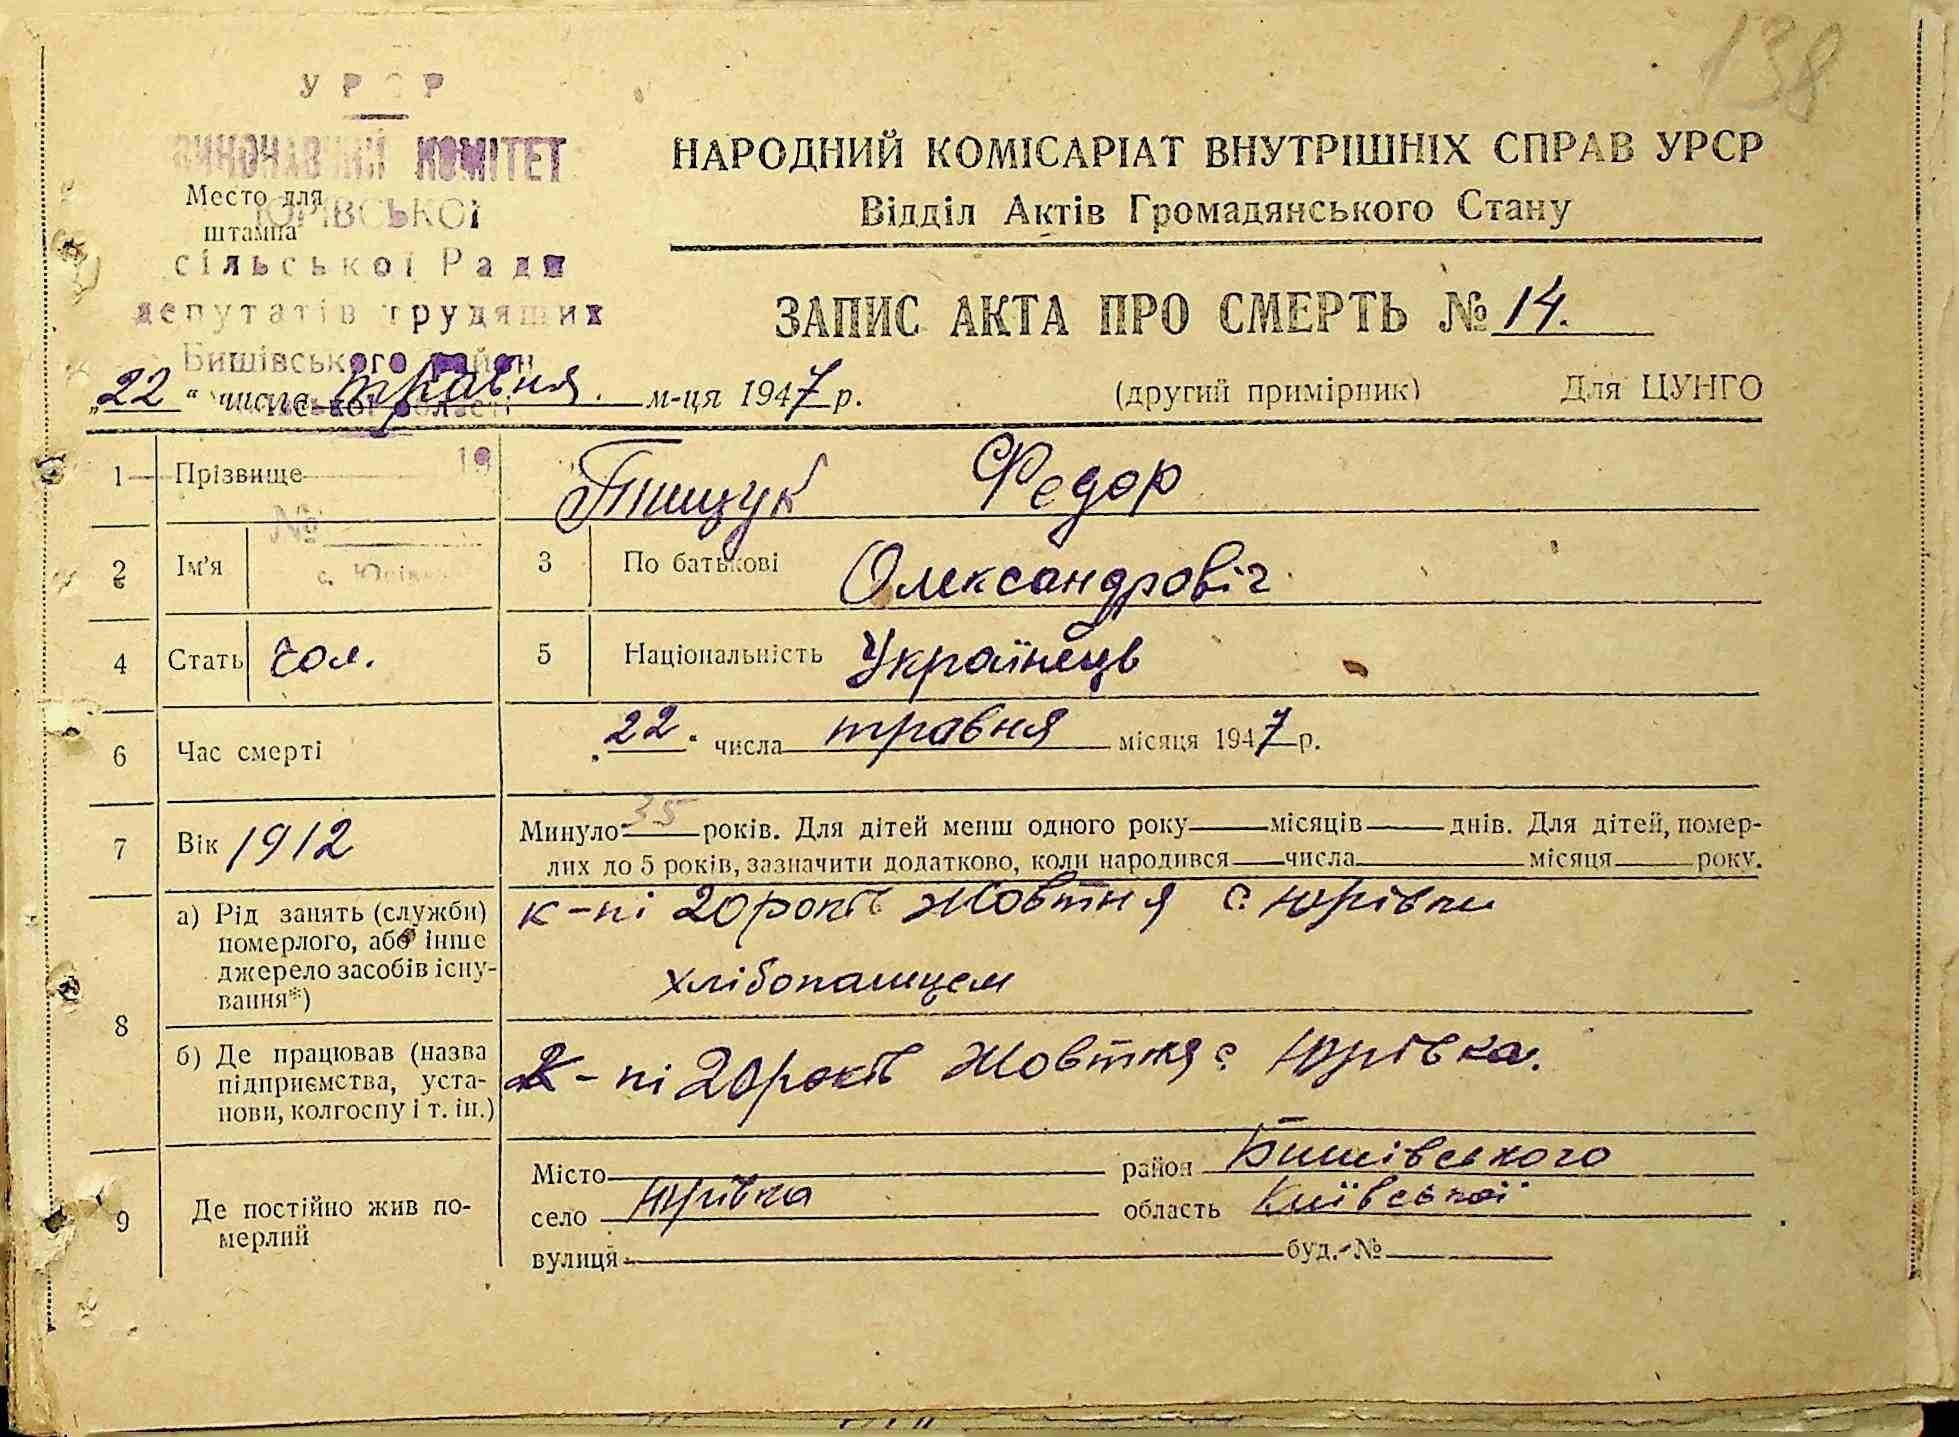 138
УРСР
ВИКОНАВЧИЙ КОМІТЕТ
ЮРІВСЬКОЇ
сільської Ради
депутатів трудящих
Бишівського район
області
19
№
с. Юрівка
Место для
штампа
НАРОДНИЙ КОМІСАРІАТ ВНУТРІШНІХ СПРАВ УРСР
Відділ Актів Громадянського Стану
ЗАПИС АКТА ПРО СМЕРТЬ № 14.
„22“ числа травня. м-ця 1947 р.
(другий примірник) Для ЦУНГО
1 Прізвище Тищук Федор
2 Ім'я 3 По батькові Олександровіч
4 Стать чол. 5 Національність Українець
6 Час смерті „22“ числа травня місяця 1947 р.
7 Вік 1912 Минуло 35 років. Для дітей менш одного року місяців днів. Для дітей, помер-
лих до 5 років, зазначити додатково, коли народився числа місяця року.
8 а) Рід занять (служби)
померлого, або інше
джерело засобів існу-
вання*)
к-пі 20 років Жовтня с. Юрівки
хлібопашцем
б) Де працював (назва
підприємства, уста-
нови, колгоспу і т. ін.)
к-пі 20 років Жовтня с. Юрівка.
9 Де постійно жив по-
мерлий
Місто район Бишівського
село Юрівка область Київської
вулиця буд. №